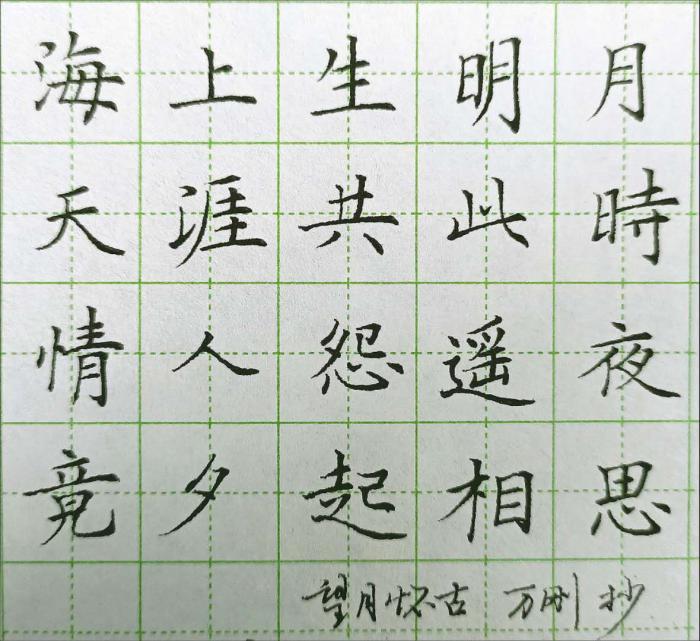 海上生明月
天涯共此時
情人怨遥夜
竟夕起相思
望月怀古 万刚 抄